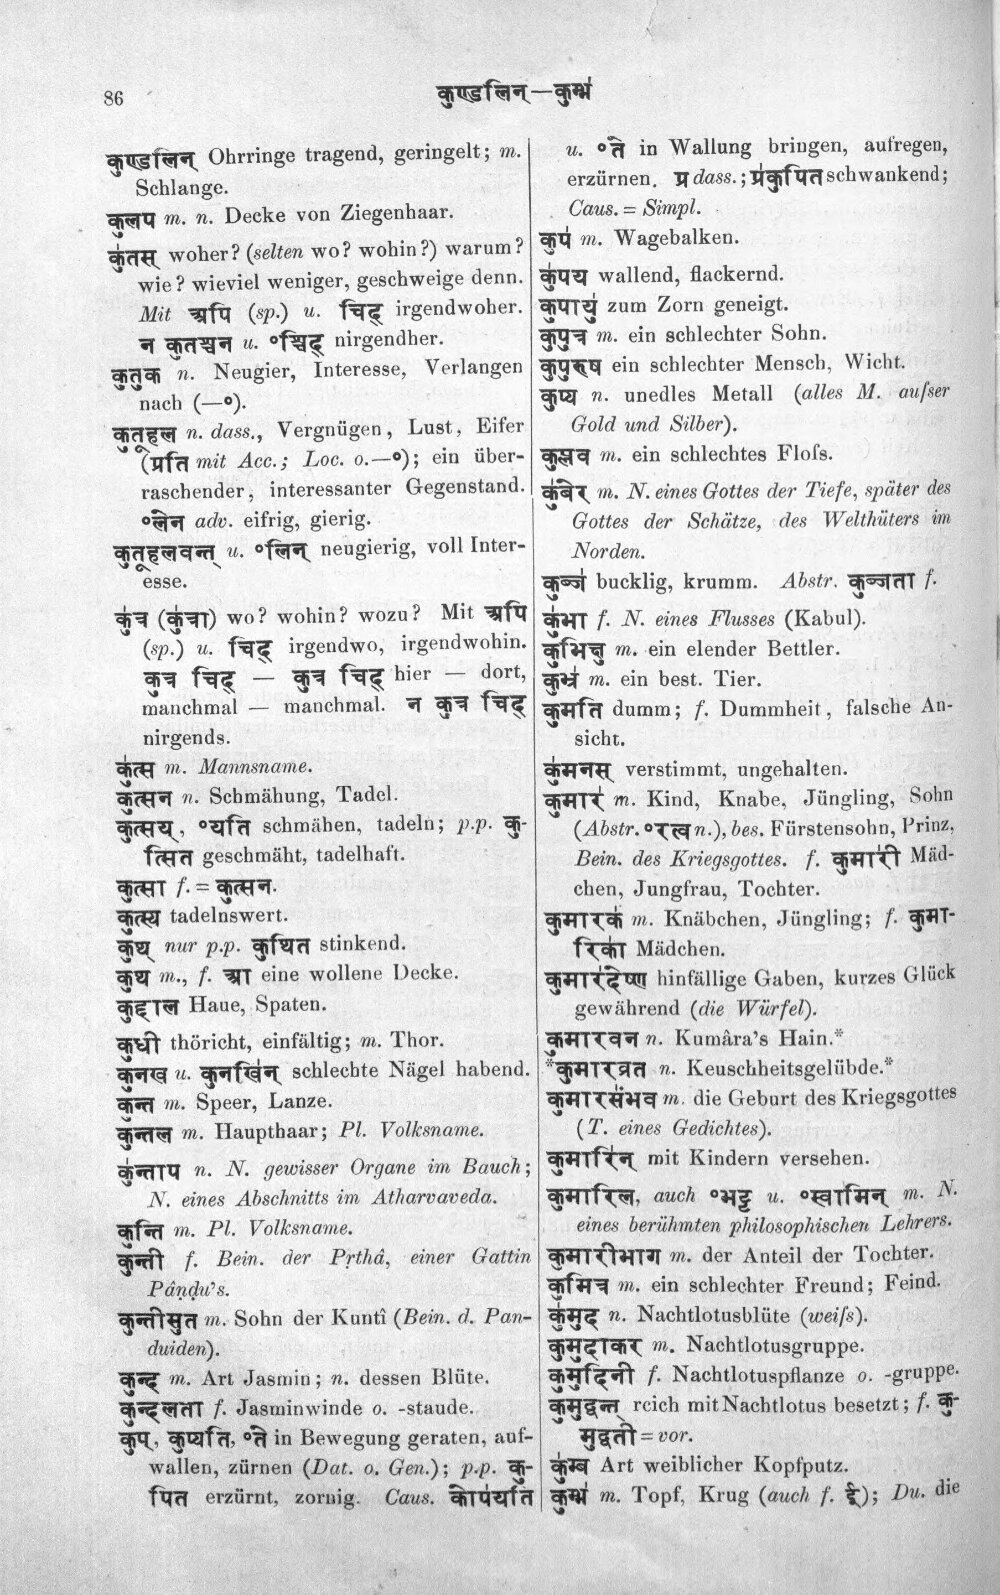 86
कुण्डलिन् — कुम्भ॑
कुण्डलिन् Ohrringe tragend, geringelt; m.
Schlange.
कुलप m. n. Decke von Ziegenhaar.
कु॑तस् woher? (selten wo? wohin?) warum?
wie? wieviel weniger, geschweige denn.
Mit अपि (sp.) u. चिद् irgendwoher.
न कुतश्चन u. °श्चिद् nirgendher.
कुतुक n. Neugier, Interesse, Verlangen
nach (—°).
कुतूहल n. dass., Vergnügen, Lust, Eifer
(प्रति mit Acc.; Loc. o.—°); ein über-
raschender, interessanter Gegenstand.
°लेन adv. eifrig, gierig.
कुतूहलवन्त् u. °लिन् neugierig, voll Inter-
esse.
कु॑त्र (कु॑त्रा) wo? wohin? wozu? Mit अपि
(sp.) u. चिद् irgendwo, irgendwohin.
कुत्र चिद् — कुत्र चिद् hier — dort,
manchmal — manchmal. न कुत्र चिद्
nirgends.
कु॑त्स m. Mannsname.
कुत्सन n. Schmähung, Tadel.
कुत्सय्, °यति schmähen, tadeln; p.p. कु-
त्सित geschmäht, tadelhaft.
कुत्सा f. = कुत्सन.
कुत्स्य tadelnswert.
कुथ् nur p.p. कुथित stinkend.
कुथ m., f. आ eine wollene Decke.
कुद्दाल Haue, Spaten.
कुधी thöricht, einfältig; m. Thor.
कुनख u. कुनखि॑न् schlechte Nägel habend.
कुन्त m. Speer, Lanze.
कुन्तल m. Haupthaar; Pl. Volksname.
कु॑न्ताप n. N. gewisser Organe im Bauch;
N. eines Abschnitts im Atharvaveda.
कुन्ति m. Pl. Volksname.
कुन्ती f. Bein. der Pṛthâ, einer Gattin
Pâṇḍu's.
कुन्तीसुत m. Sohn der Kuntî (Bein. d. Pan-
duiden).
कुन्द m. Art Jasmin; n. dessen Blüte.
कुन्दलता f. Jasminwinde o. -staude.
कुप्, कुप्यति, °ते in Bewegung geraten, auf-
wallen, zürnen (Dat. o. Gen.); p.p. कु-
पित erzürnt, zornig. Caus. कोप॑यति
u. °ते in Wallung bringen, aufregen,
erzürnen. प्र dass.; प्र॑कुपित schwankend;
Caus. = Simpl.
कुप॑ m. Wagebalken.
कु॑पय wallend, flackernd.
कुपायु॑ zum Zorn geneigt.
कुपुत्र m. ein schlechter Sohn.
कुपुरुष ein schlechter Mensch, Wicht.
कुप्य n. unedles Metall (alles M. auſser
Gold und Silber).
कुप्लव m. ein schlechtes Floſs.
कु॑बेर m. N. eines Gottes der Tiefe, später des
Gottes der Schätze, des Welthüters im
Norden.
कुब्ज॑ bucklig, krumm. Abstr. कुब्जता f.
कु॑भा f. N. eines Flusses (Kabul).
कुभिक्षु m. ein elender Bettler.
कुभ्र॑ m. ein best. Tier.
कुमति dumm; f. Dummheit, falsche An-
sicht.
कु॑मनस् verstimmt, ungehalten.
कुमार॑ m. Kind, Knabe, Jüngling, Sohn
(Abstr. °रत्व n.), bes. Fürstensohn, Prinz,
Bein. des Kriegsgottes. f. कुमारी॑ Mäd-
chen, Jungfrau, Tochter.
कुमारक॑ m. Knäbchen, Jüngling; f. कुमा-
रिका॑ Mädchen.
कुमार॑देष्ण hinfällige Gaben, kurzes Glück
gewährend (die Würfel).
कुमारवन n. Kumâra's Hain.*
*कुमारव्रत n. Keuschheitsgelübde.*
कुमारसंभव m. die Geburt des Kriegsgottes
(T. eines Gedichtes).
कुमारि॑न् mit Kindern versehen.
कुमारिल, auch °भट्ट u. °स्वामिन् m. N.
eines berühmten philosophischen Lehrers.
कुमारीभाग m. der Anteil der Tochter.
कुमित्र m. ein schlechter Freund; Feind.
कु॑मुद् n. Nachtlotusblüte (weiſs).
कुमुदाकर m. Nachtlotusgruppe.
कुमुदिनी f. Nachtlotuspflanze o. -gruppe.
कुमुद्वन्त् reich mit Nachtlotus besetzt; f. कु-
मुद्वती = vor.
कु॑म्ब Art weiblicher Kopfputz.
कुम्भ॑ m. Topf, Krug (auch f. ई); Du. die